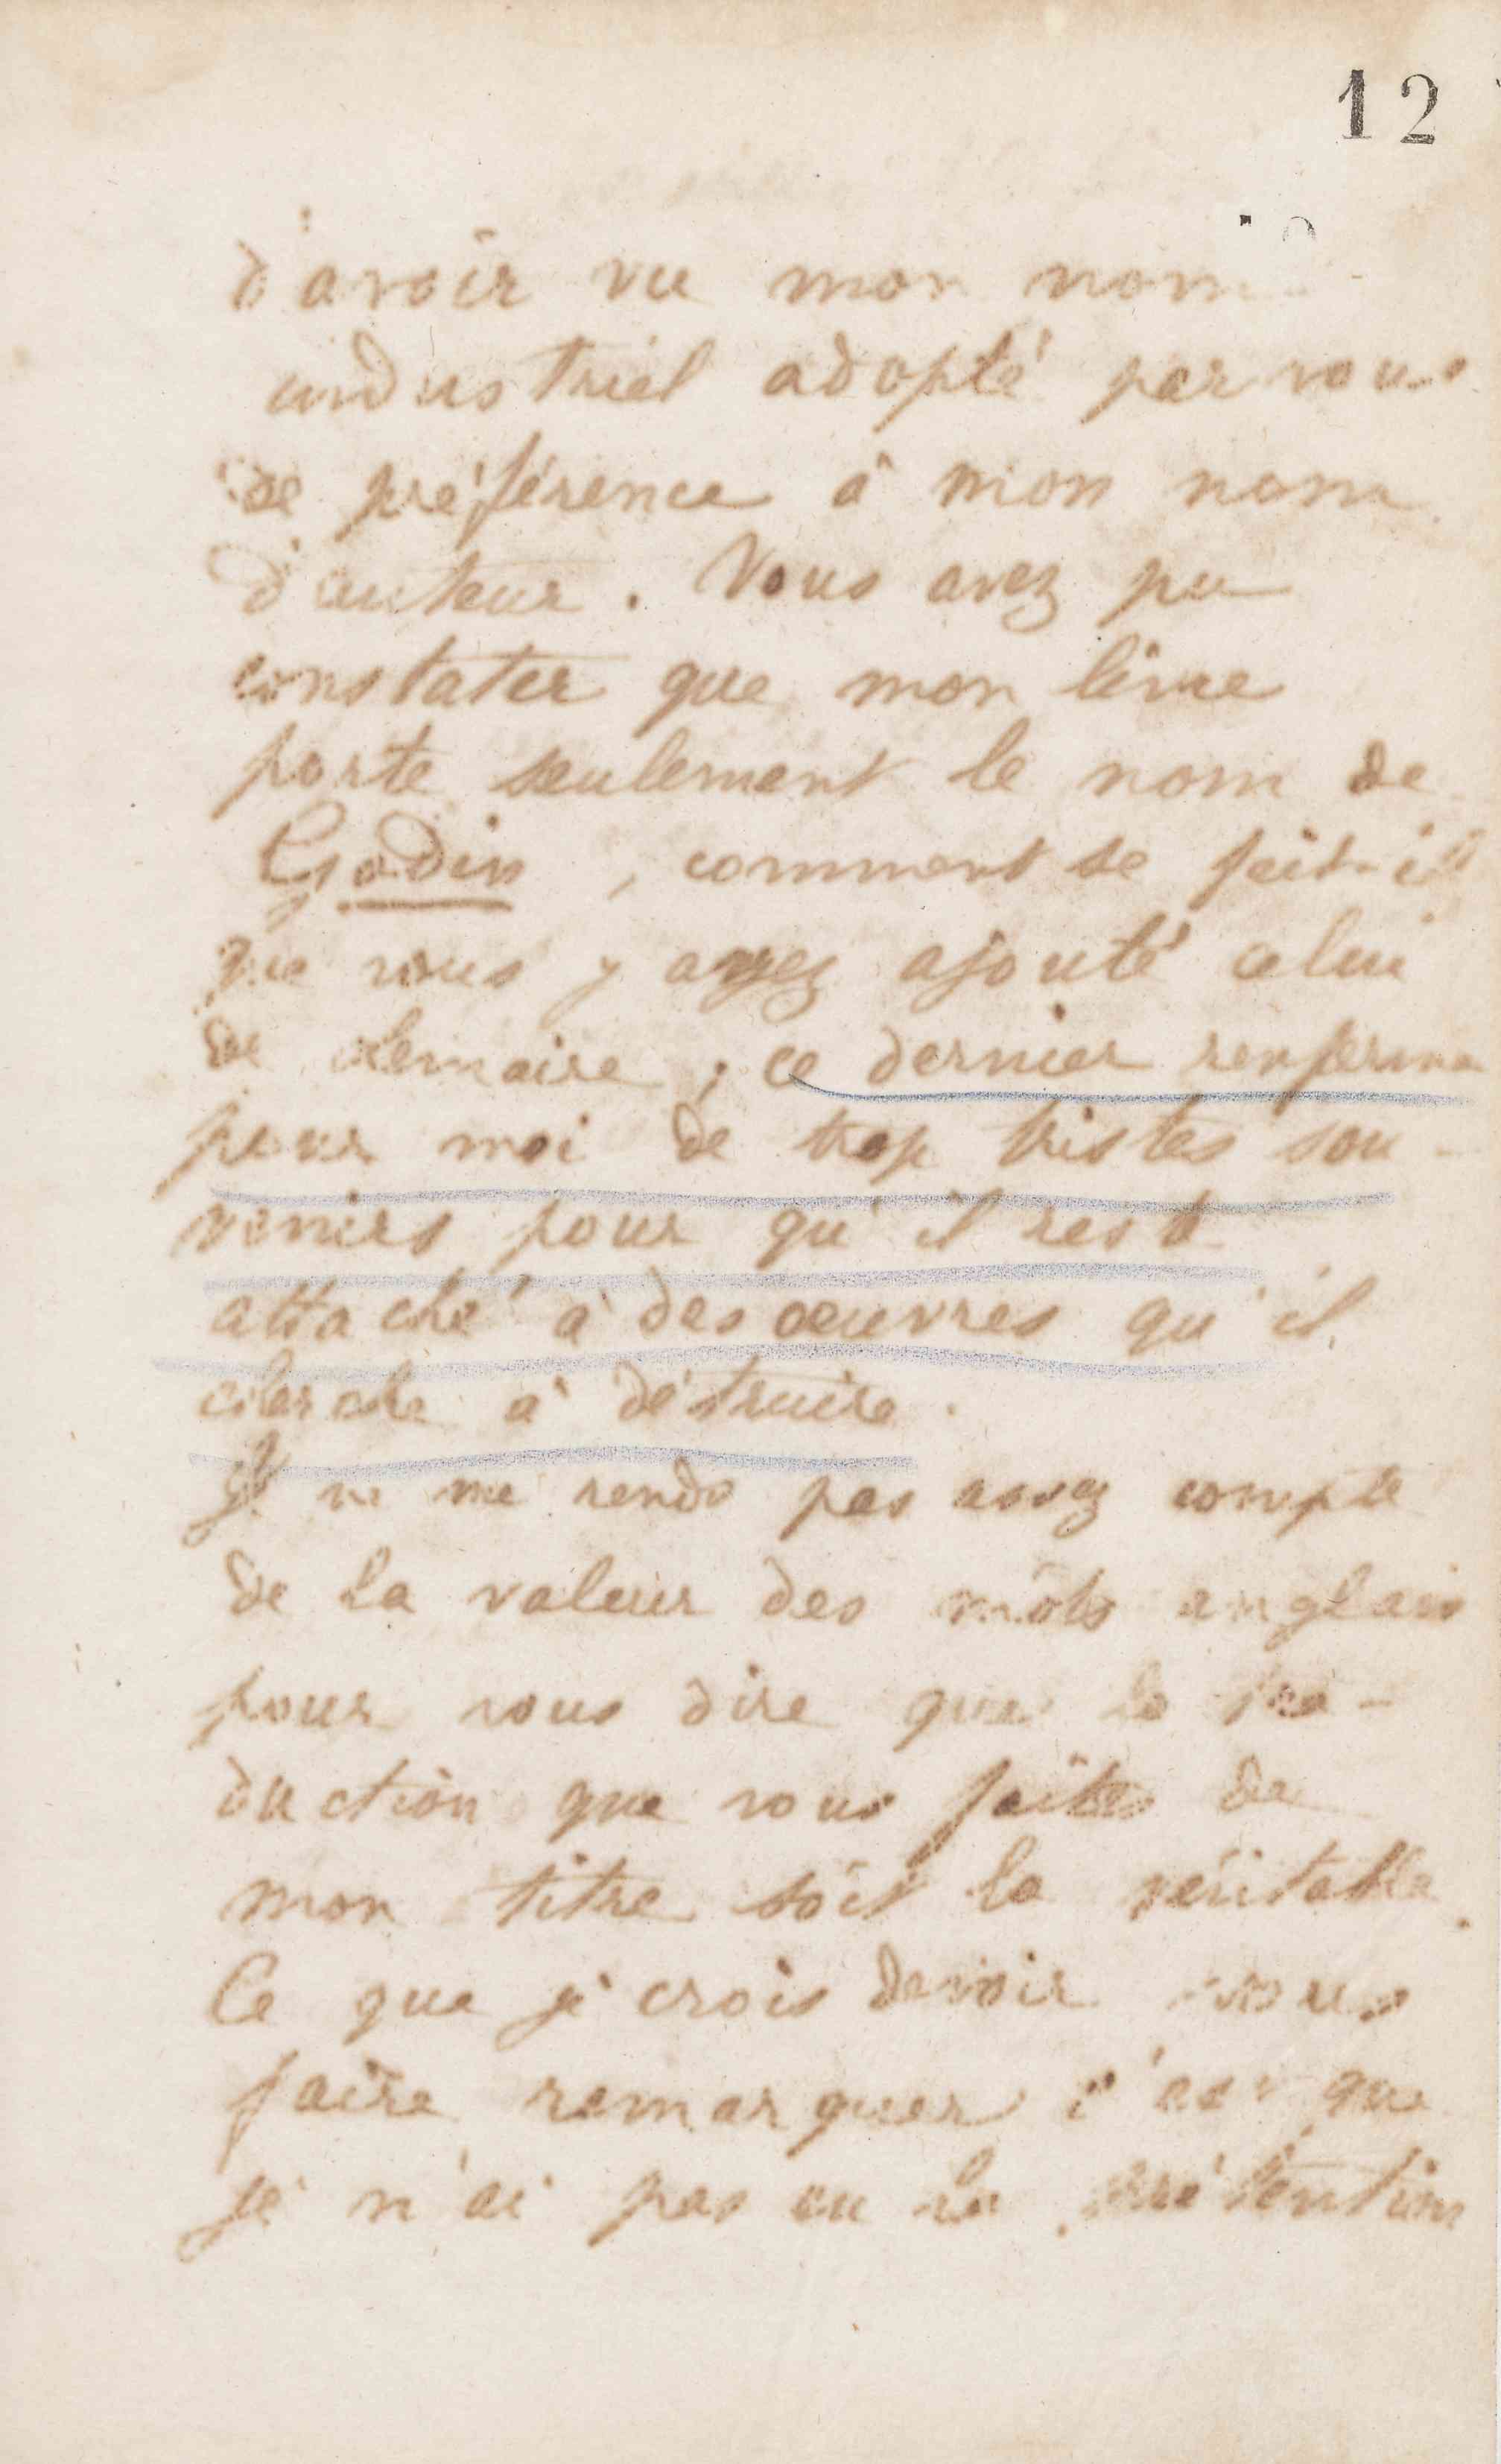 12
d'avoir vu mon nom
industriel adopté par vous
de préférence à mon nom
d'auteur. Vous avez pu
constater que mon livre
porte seulement le nom de
Godin, comment se fait-il
que vous y ayez ajouté celui
de Lemaire ; ce dernier renferme
pour moi de trop tristes sou-
venirs pour qu'il reste
attaché à des œuvres qu'il
cherche à détruire.
Je ne me rends pas assez compte
de la valeur des mots anglais
pour vous dire que la tra-
duction que vous faites de
mon titre soit la véritable.
Ce que je crois devoir vous
faire remarquer c'est que
je n'ai pas eu la prétention